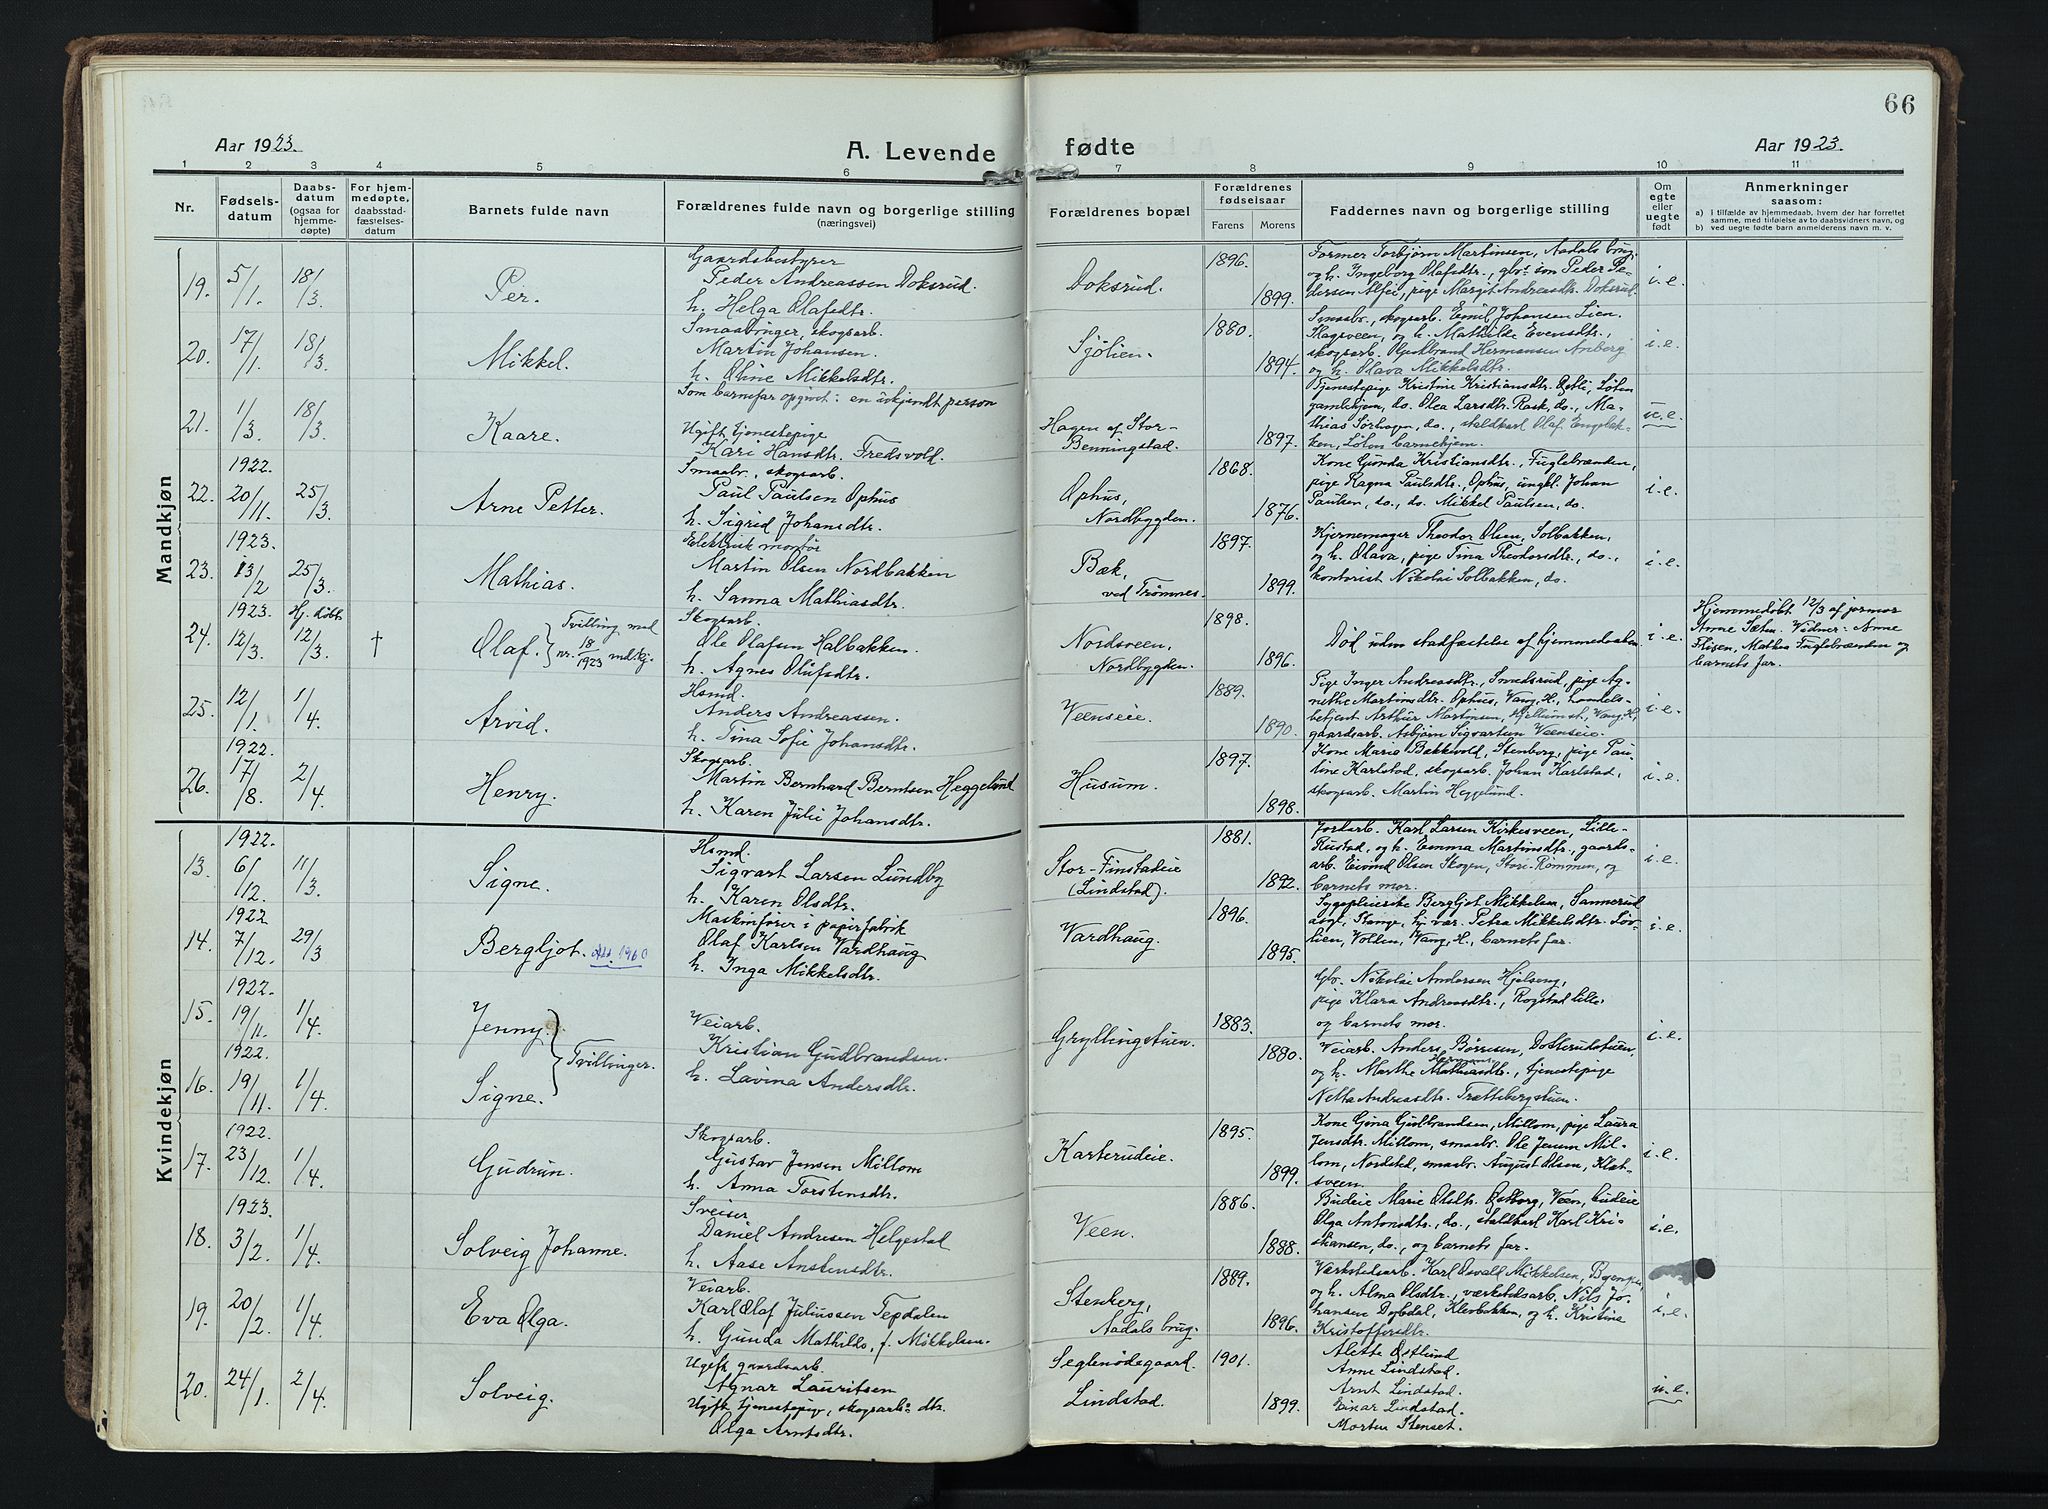 66
Aar 1923.
A. Levende fødte
Aar 1923.
1 2 3 4 5 6 7 8 9 10 11
Nr.
Fødsels-
datum
Daabs-
datum
(ogsaa for
hjemme-
døpte)
For hjem-
medøpte,
daabsstad-
fæstelses-
datum
Barnets fulde navn
Forældrenes fulde navn og borgerlige stilling
(næringsvei)
Forældrenes bopæl
Forældrenes
fødselsaar
Farens Morens
Faddernes navn og borgerlige stilling
Om
egte
eller
uegte
født
Anmerkninger
saasom:
a) I tilfælde av hjemmedaab, hvem der har forrettet
samme, med tilføielse av to daabsvidners navn, og
b) ved uegte fødte barn anmelderens navn m. v.
Mandkjøn
19. 5/1. 18/3. Per.
Gaardsbestyrer
Peder Andreassen Doksrud.
h. Helga Olafsdtr.
Doksrud.
1896.
1899.
Former Torbjørn Martinsen, Aadals brug,
og h. Ingeborg Olafsdtr., gbr. søn Peder Pe-
dersen Alfei, pige Margit Andreasdtr. Doksrud.
i.e.
20. 17/1. 18/3. Mikkel.
Smaabruger, skogsarb.
Martin Johansen.
h. Oline Mikkelsdtr.
Sjølien.
1880.
1894.
Smaabr., skogsarb. Emil Johansen Lien.
Flagsveen, og h. Mathilde Evensdtr.,
skogsarb. Gudbrand Hermansen Anberg
og h. Olava Mikkelsdtr.
i.e.
21. 1/3. 18/3. Kaare.
Som barnefar opgivet: en ukjendt person
Ugift tjenestepige
Kari Hansdtr. Fredsvold.
Hagen af Stor-
Benningstad.
1897.
Tjenestepige Kristine Kristiansdtr. Løten
gamlehjem, do. Olea Larsdtr. Rask, do., Ma-
thias Sørhagen, do., staldkarl Olaf Engebak-
ken, Løten barnehjem.
u.e.
1922.
22. 20/11. 25/3. Arne Petter.
Smaabr., skogsarb.
Paul Paulsen Ophus
h. Sigrid Johansdtr.
Ophus,
Nordbygden.
1868.
1876.
Kone Gunda Kristiansdtr., Fuglebrænden,
pige Ragna Paulsdtr., Ophus, ungk. Johan
Paulsen, do., do. Mikkel Paulsen, do.
i.e.
1923.
23. 13/2 25/3. Mathias.
Elektrisk montør
Martin Olsen Nordbakken
h. Sanna Mathiasdtr.
Bæk,
ved Trømnes.
1897.
1899.
Kjernemager Theodor Olsen, Solbakken,
og h. Olava, pige Tina Theodorsdtr., do.,
kontorist Nikolai Solbakken, do.
i.e.
1923. Hj. døbt
24. 12/3. 12/3. † Olaf. Tvilling med
nr. 18/1923 md.kj.
Skogsarb.
Ole Olafsen Halbakken.
h. Agnes Olufsdtr.
Nordsveen,
Nordbygden.
1898.
1896.
Død uden stadfæstelse af hjemmedaaben
i.e.
Hjemmedøbt 12/3 af jormor
Anne Sæten. Vidner: Anne
Flisen, Mathea Fuglebrænden og
barnets far.
25. 12/1. 1/4. Arvid.
Hsmd.
Anders Andreassen.
h. Tina Sofie Johansdtr.
Veenseie.
1889.
1890.
Pige Inger Andreasdtr., Smedsrud, pige Ag-
nethe Martinsdtr. Ophus, Vang, H., handels-
betjent Arthur Martinsen, Hjellum st., Vang, H.,
gaardsarb. Asbjørn Sigvartsen Veenseie.
i.e.
1922.
26. 17/8. 2/4. Henry.
Skogsarb.
Martin Bernhard Berntsen Heggelund
h. Karen Julie Johansdtr.
Husum.
1897.
1898.
Kone Maria Bækkevold, Stenberg, pige Pau-
line Karlstad, skogsarb. Johan Karlstad,
skogsarb. Martin Heggelund.
i.e.
Kvindekjøn
1922.
13. 6/12. 11/3. Signe.
Hsmd.
Sigvart Larsen Lundby
h. Karen Olsdtr.
Stor-Finstadeie
(Lindstad).
1881.
1892.
Jordarb. Karl Larsen Kirkesveen, Lille-
Rustad, og h. Emma Martinsdtr., gaards-
arb. Eivind Olsen Skogen, Stori-Rømmen, og
barnets mor.
i.e.
1922
14. 7/12. 29/3 Bergljot. 1960
Maskinfører i papirfabrik
Olaf Karlsen Vardhaug
h. Inga Mikkelsdtr.
Vardhaug.
1896.
1895.
Sygepleierske Bergljot Mikkelsen, Sannerud
asyl, Stange, hj. var. Petra Mikkelsdtr. Løv-
lien, Volden, Vang, H., barnets far.
i.e.
1922.
15. 19/11. 1/4. Jenny.
1922.
16. 19/11. 1/4. Signe.
Tvillinger.
Veiarb.
Kristian Gudbrandsen.
h. Lavina Andersdtr.
Gryllingstuen.
1883.
1880.
Gbr. Nikolai Andersen Hjelseng,
pige Klara Andreasdtr., Rogstad lille,
og barnets mor.
Veiarb. Anders Børresen, Dotterudstuen,
og h. Marthe Mathiasdtr., tjenestepige
Netta Andreasdtr. Trættebergstuen.
i.e.
1922.
17. 23/12. 1/4. Gudrun.
Skogsarb.
Gustav Jensen Millom
h. Anna Torstensdtr.
Karterudeie.
1895.
1899.
Kone Gina Gudbrandsen, Millom, pige Laura
Jensdtr. Millom, smaabr. Ole Jensen Mil-
lom, Nordstel, smaabr. August Olsen, Klæt-
sveen.
i.e.
1923.
18. 3/2. 1/4. Solveig Johanne.
Sveiser
Daniel Andresen Helgestad
h. Aase Anstensdtr.
Veen.
1886.
1888.
Budeie Marie Olsdtr. Østborg, Veen, budeie
Olga Antonsdtr., do., staldkarl Karl Kri-
stiansen, do., og barnets far.
i.e.
19. 20/2. 1/4. Eva Olga.
Veiarb.
Karl Olaf Juliussen Tepdalen
h. Gunda Mathilde, f. Mikkelsen.
Stenberg,
Aadals brug.
1889.
1896.
Værkstedsarb. Karl Osvald Mikkelsen,
og h. Alma Olsdtr., værkstedsarb. Nils Jo-
hansen Dybdal, Klevbakken, og h. Kristine
Kristoffersdtr.
i.e.
20. 24/1. 2/4. Solveig.
Ugift gaardsarb.
Agnar Lauritsen
Ugift tjenestepige, skogsarb.s dtr.
Olga Arntsdtr.
Seglenødegaard.
Lindstad.
1901.
1899.
Alette Østlund
Anne Lindstad.
Arnt Lindstad.
Einar Lindstad.
Morten Stenset.
u.e.